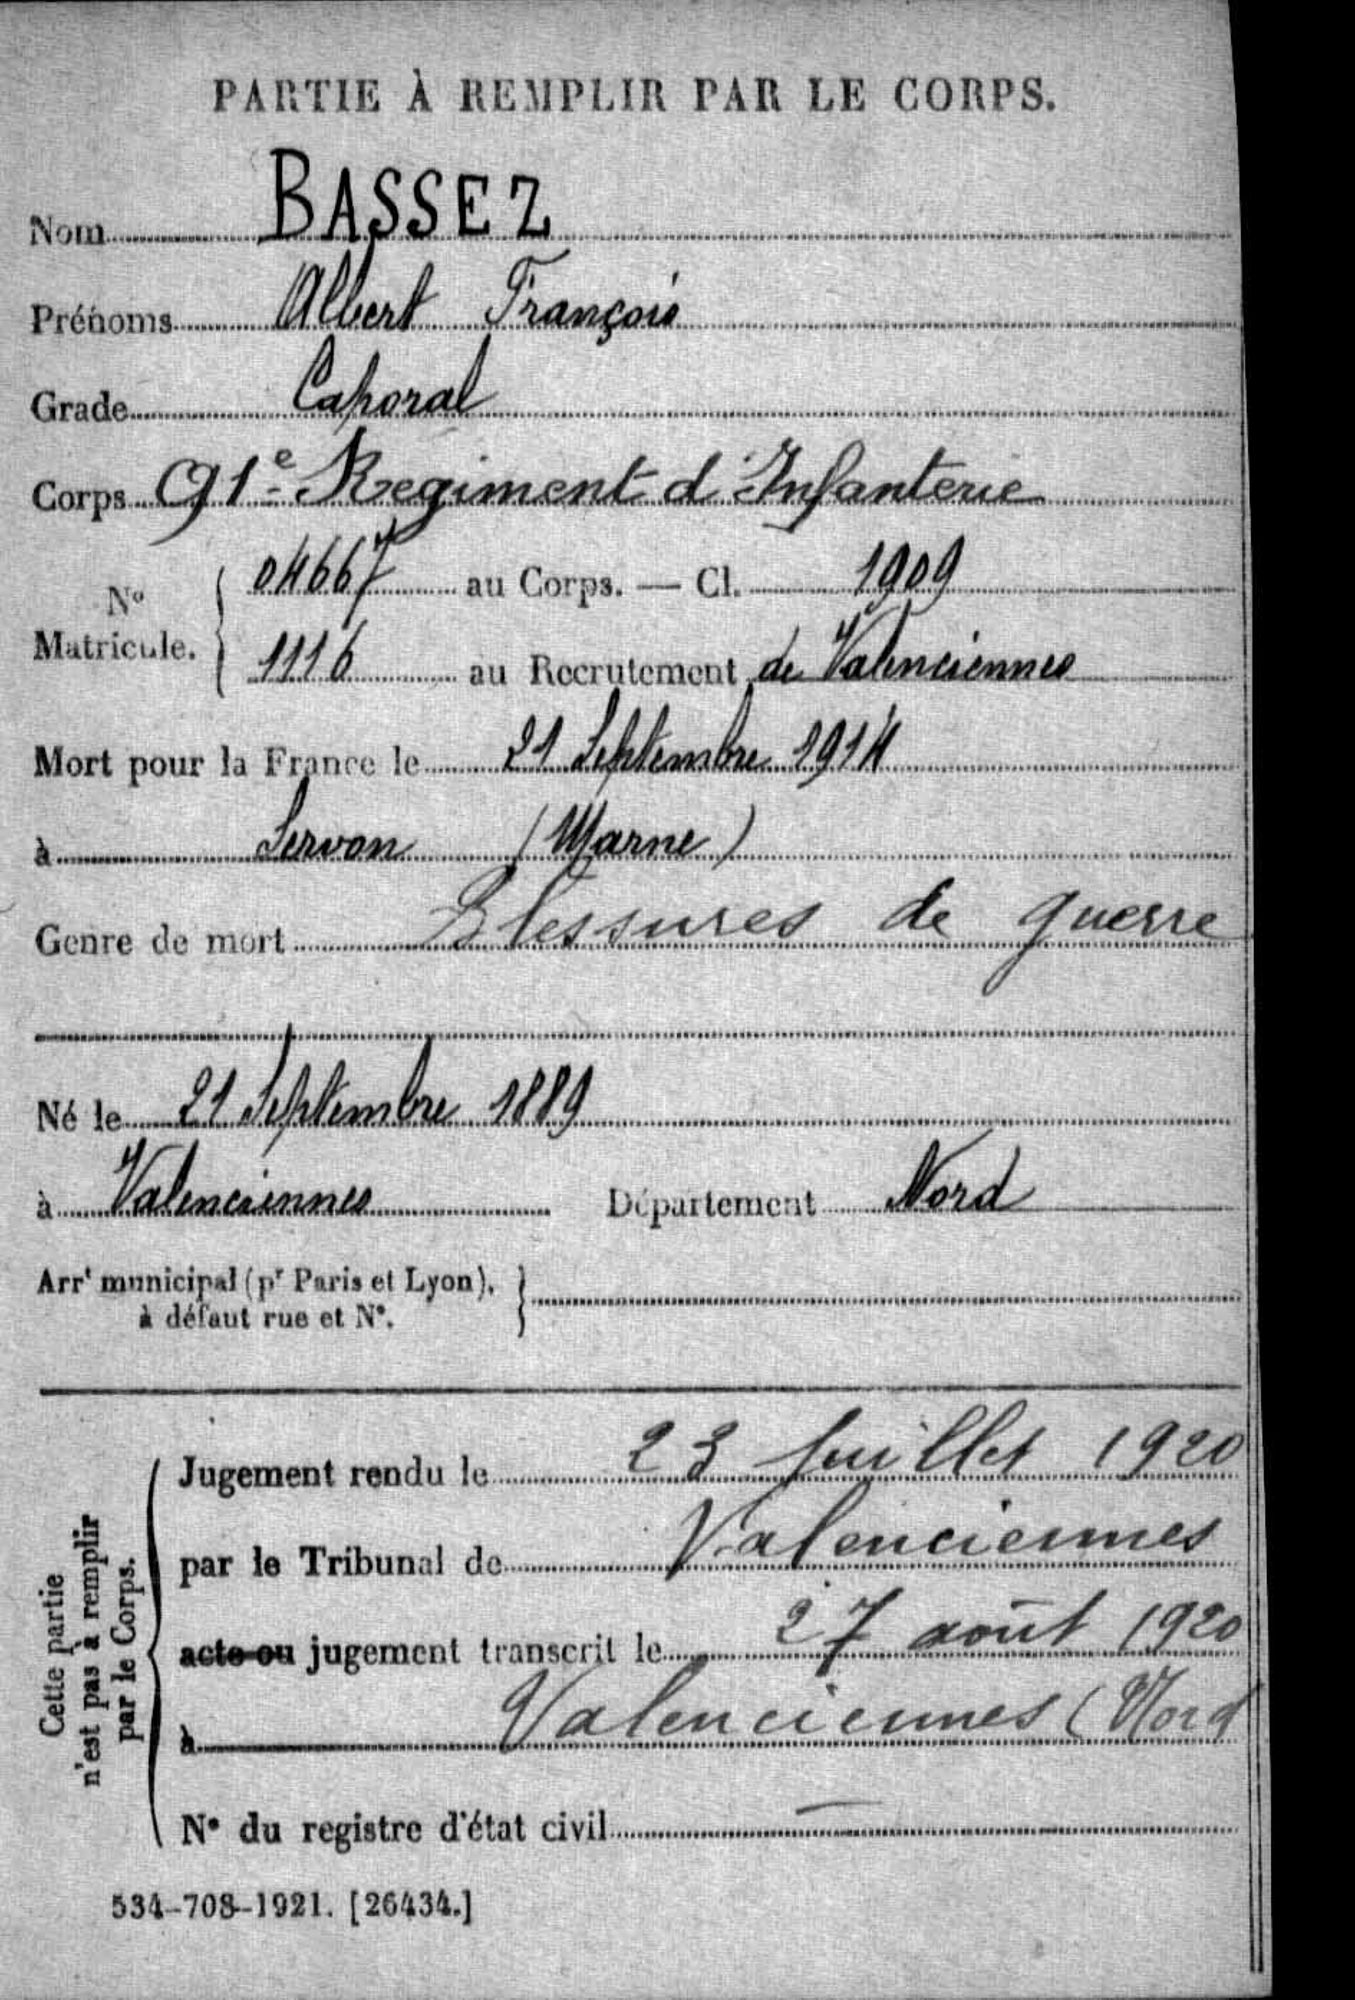 PARTIE À REMPLIR PAR LE CORPS.
Nom BASSEZ
Prénoms Albert François
Grade Caporal
Corps 91e Regiment d'Infanterie
No Matricule. { 04667 au Corps. — Cl. 1909
1116 au Recrutement de Valenciennes
Mort pour la France le 21 Septembre 1914
à Servon (Marne)
Genre de mort Blessures de guerre
Né le 21 Septembre 1889
à Valenciennes Département Nord
Arrt municipal (pr Paris et Lyon),
à défaut rue et N°.
Cette partie
n'est pas à remplir
par le Corps.
Jugement rendu le 23 Juillet 1920
par le Tribunal de Valenciennes
acte ou jugement transcrit le 27 août 1920
à Valenciennes (Nord
N° du registre d'état civil —
534-708-1921. [26434.]